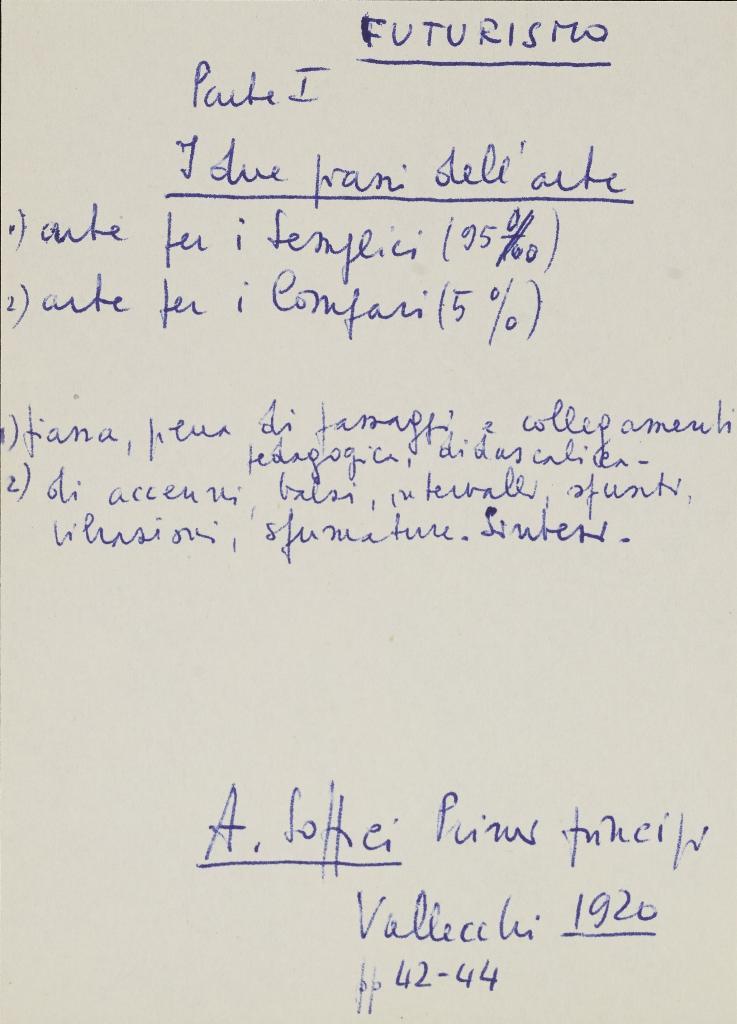 FUTURISMO
Parte I
I due frasi dell'arte
1) arte per i Semplici (95%)
2) arte per i Compari (5%)
1) piana, piena di passaggi e collegamenti
pedagogica, didascalica-
2) di accenni, balzi, intervalli, spunti,
vibrazioni, sfumature. Sintesi.
A. Soffici Primi principi
Vallecchi 1920
pp 42-44